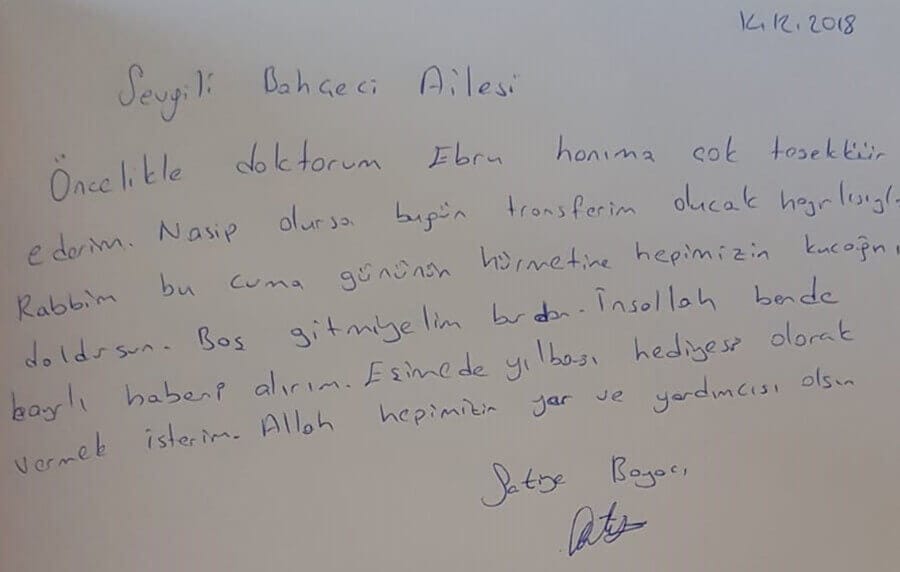 14.12.2018
Sevgili Bahçeci Ailesi
Öncelikle doktorum Ebru hanıma çok teşekkür
ederim. Nasip olursa bugün transferim olucak hayırlısıyla
Rabbim bu cuma gününün hürmetine hepimizin kucağını
doldursun. Boş gitmiyelim burdan. İnşallah bende
hayırlı haberi alırım. Eşimede yılbaşı hediyesi olarak
vermek isterim. Allah hepimizin yar ve yardımcısı olsun
Satiye Boyacı